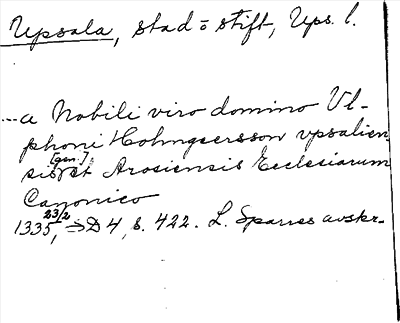 Upsala, stad o stift, Ups. l.
...a Nobili viro domino Ul-
phoni Holmgeersson vpsalien
[gen.]
sis et Arosiensis Ecclesiarum
Canonico
1335 23/2, => D 4, s. 422. L. Sparres avskr.